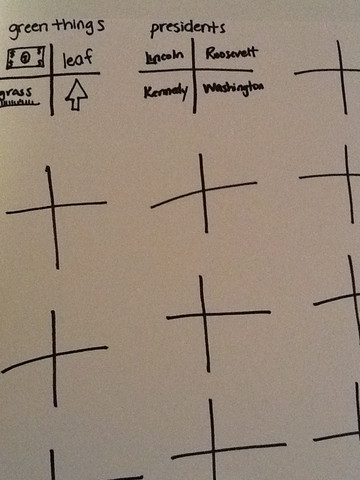 green things
leaf
grass
presidents
Lincoln Roosevelt
Kennedy Washington